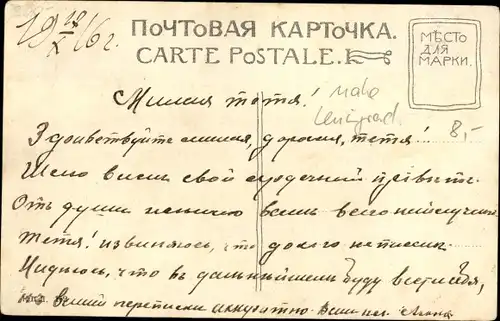 19 19/X 16 г.
ПОЧТОВАЯ КАРТОЧКА.
CARTE POSTALE.
МѢСТО
ДЛЯ
МАРКИ.
Милая тетя!
nahe
Leningrad.
8,-
Здравствуйте милая, дорогая, тетя!
Шлю вамъ свой сердечный привѣтъ.
Отъ души желаю вамъ всего наилучш
Тетя! извиняюсь, что долго не писала
Надѣюсь, что въ дальнѣйшемъ буду вести
вашей переписки аккуратно. Ваша